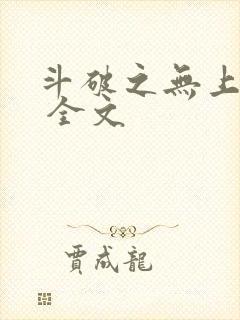 斗破之無上
全文
賈成龍